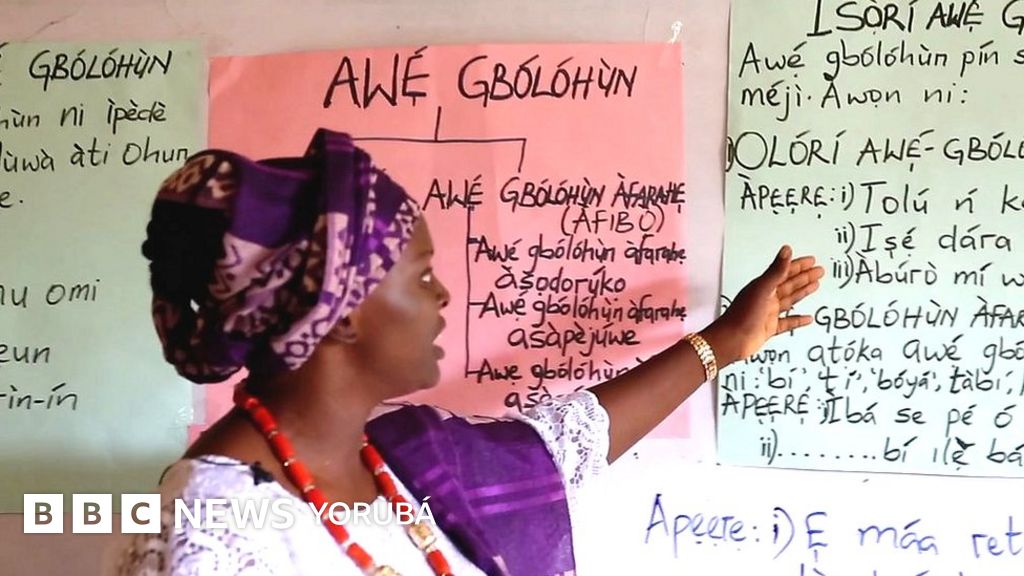 GBÓLÓHÙN
ni ìpèdè
àti Ohun
omi
AWẸ́ GBÓLÓHÙN
AWẸ́ GBÓLÓHÙN ÀFARAHẸ
(ÀFIBỌ̀)
Awẹ́ gbólóhùn àfarahẹ
aṣodorúkọ
Awẹ́ gbólóhùn àfarahẹ
aṣàpèjúwe
Awẹ gbólóhùn
ÌSỌ̀RÍ AWẸ́
Awẹ́ gbólóhùn pín
méjì. Àwọn ni:
OLÓRÍ AWẸ́-
ÀPẸẸRẸ: i) Tolú ń
ii) Iṣẹ́ dára
iii) Àbúrò mí
GBÓLÓHÙN
atóka awẹ́
ni: 'bí', 'tí', 'bóyá', tàbí,
ÀPẸẸRẸ i) Ìbá se pé ó
ii) ......... bí ilẹ̀ bá
Àpẹẹrẹ: i) Ẹ máa
BBC NEWS YORÙBÁ